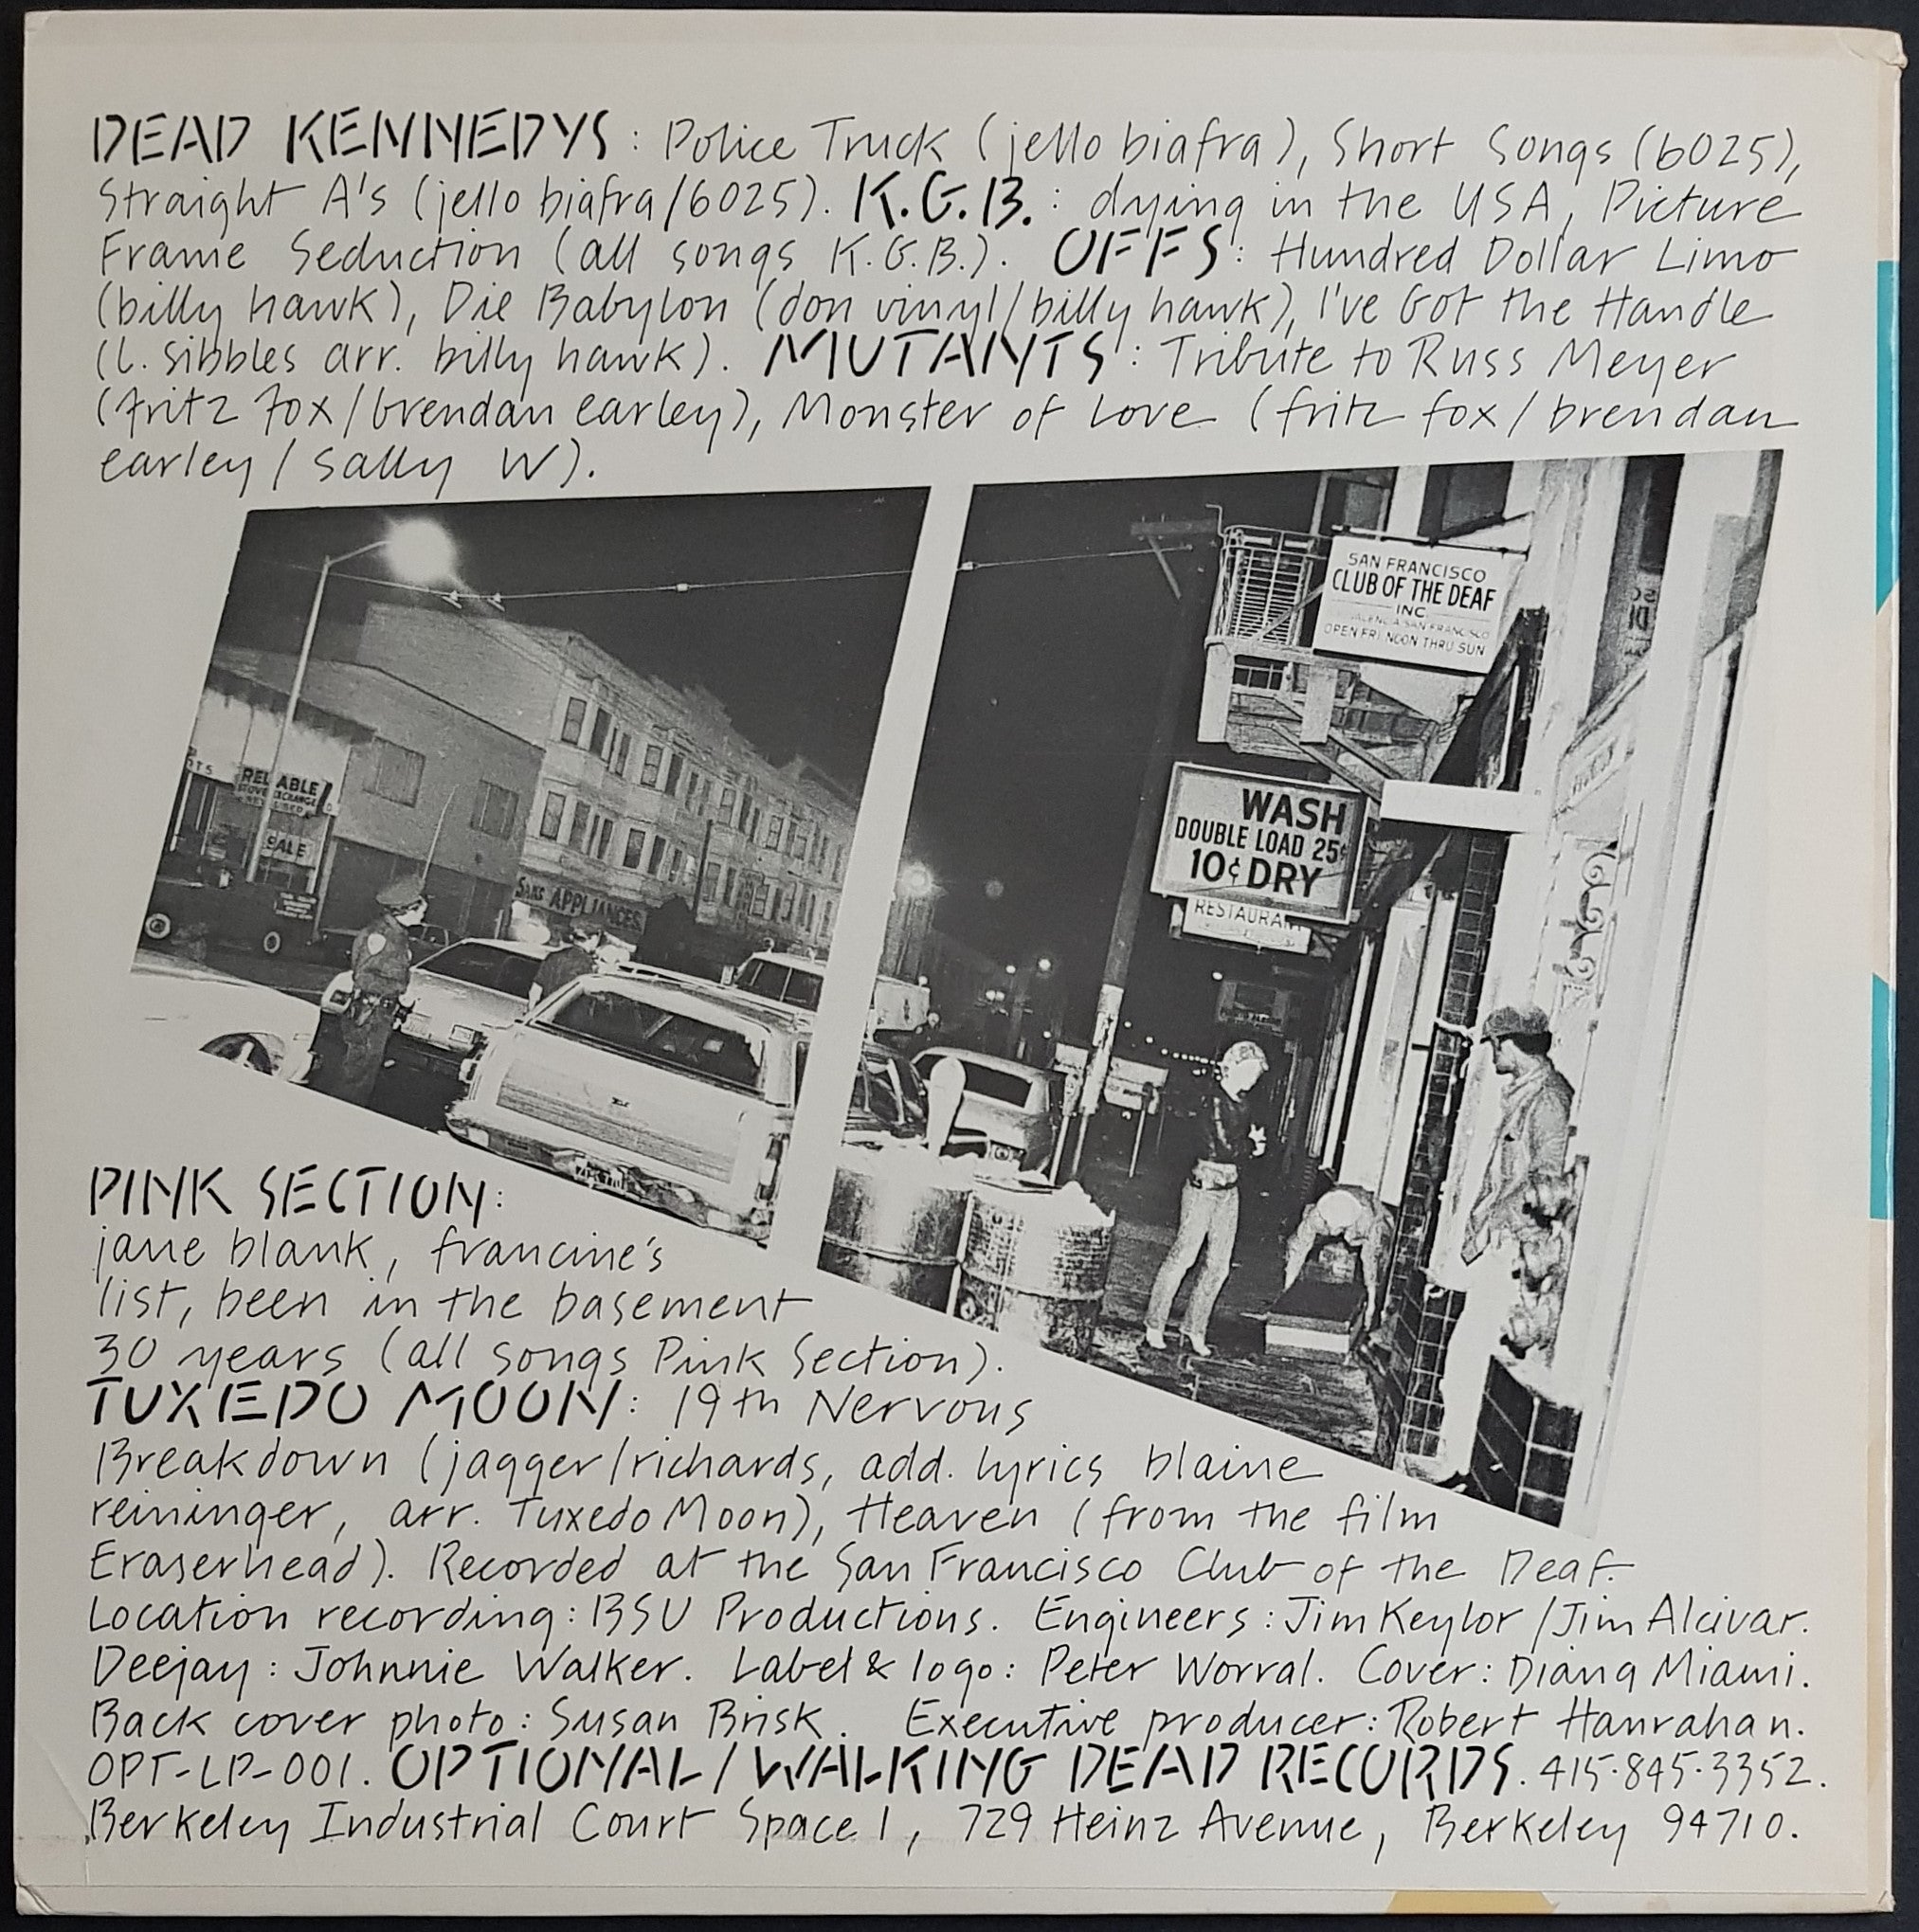 DEAD KENNEDYS: Police Truck (jello biafra), Short Songs (6025),
Straight A's (jello biafra/6025). K.G.B.: dying in the USA, Picture
Frame Seduction (all songs K.G.B.). OFFS: Hundred Dollar Limo
(billy hawk), Die Babylon (don vinyl/billy hawk), I've Got the Handle
(l. sibbles arr. billy hawk). MUTANTS: Tribute to Russ Meyer
(fritz fox/brendan earley), Monster of Love (fritz fox/brendan
earley/sally W).
SAN FRANCISCO
CLUB OF THE DEAF
INC
VALENCIA SAN FRANCISCO
OPEN FRI. NOON THRU SUN
RELIABLE
STOVE EXCHANGE
SALE
SAKS APPLIANCES
WASH
DOUBLE LOAD 25¢
10¢ DRY
RESTAURANT
PINK SECTION:
jane blank, francine's
list, been in the basement
30 years (all songs Pink Section).
TUXEDO MOON: 19th Nervous
Breakdown (jagger/richards, add. lyrics blaine
reininger, arr. Tuxedo Moon), Heaven (from the film
Eraserhead). Recorded at the San Francisco Club of the Deaf.
Location recording: BSU Productions. Engineers: Jim Keylor/Jim Alcivar.
Deejay: Johnnie Walker. Label & logo: Peter Worral. Cover: Diana Miami.
Back cover photo: Susan Brisk. Executive producer: Robert Hanrahan.
OPT-LP-001. OPTIONAL/WALKING DEAD RECORDS. 415-845-3352.
Berkeley Industrial Court Space 1, 729 Heinz Avenue, Berkeley 94710.